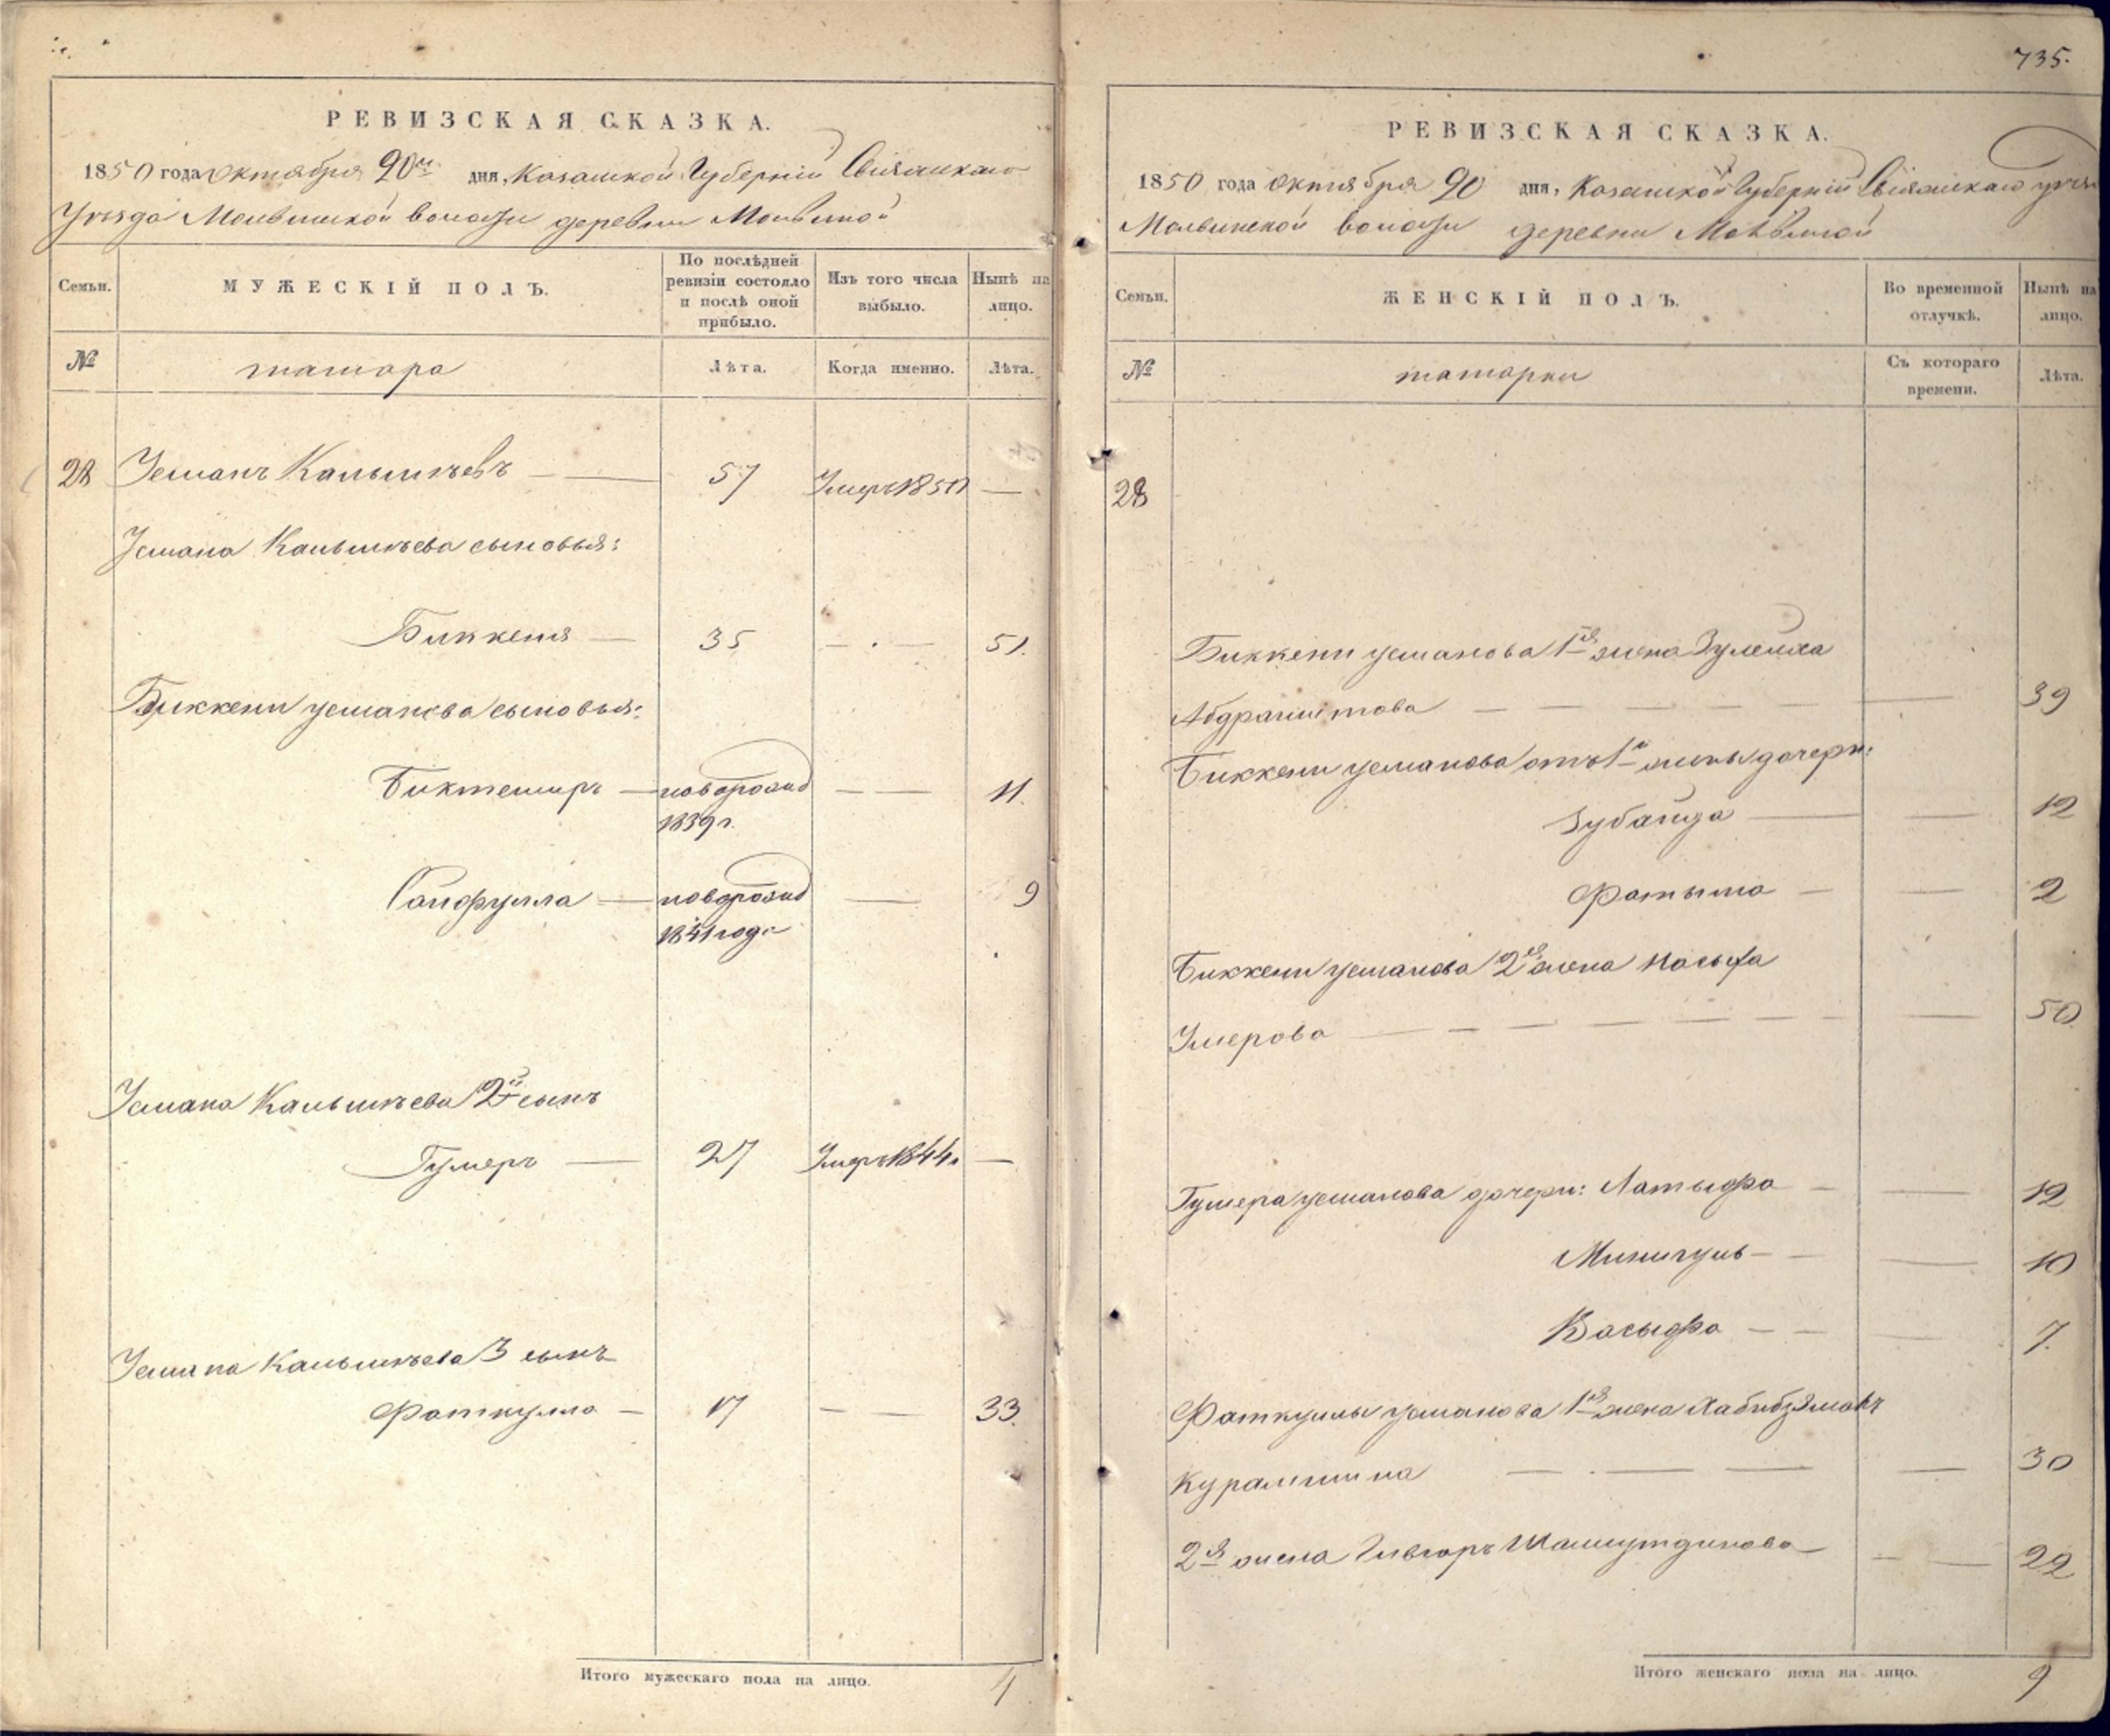 735.
РЕВИЗСКАЯ СКАЗКА.
1850 года октября 20го дня, Казанской Губернии Свіяжскаго
Уѣзда Молвинской волости деревни Молвиной
Семьи.
МУЖЕСКІЙ ПОЛЪ.
По послѣдней ревизіи состояло и послѣ оной прибыло.
Изъ того числа выбыло.
Нынѣ на лицо.
№
татара
Лѣта.
Когда именно.
Лѣта.
28 Усманъ Калышкъевъ — 57 Умеръ 1850 —
Усмана Калышкъева сыновья:
Биккеня — 35 — . — 51.
Биккени усманова сыновья:
Биктемиръ — новорожд — — 11.
1839 г.
Сайфулла — новорожд — 9
1841 года
Усмана Калышкъева 2й сынъ
Гумеръ — 27 Умеръ 1844 г —
Усмана Калышкъева 3 сынъ
Фаткулла — 17 — — 33.
Итого мужескаго пола на лицо. 4
РЕВИЗСКАЯ СКАЗКА.
1850 года октября 20 дня, Казанской Губерніи Свіяжскаго уѣзда
Молвинской волости деревни Молвиной
Семьи.
ЖЕНСКІЙ ПОЛЪ.
Во временной отлучкѣ.
Нынѣ на лицо.
№
татарки
Съ котораго времени.
Лѣта.
28
Биккени усманова 1я жена Зулейха
Абдрашитова — — — — — 39
Биккени усманова отъ 1й жены дочери:
Зубайда — — 12
Фатыма — — 2
Биккени усманова 2я жена Насыфа
Умерова — — — — — — — — 50
Гумера усманова дочери: Латыфа — — 12
Минигуль — — — 10
Васыфа — — — 7.
Фаткуллы усманова 1я жена Хабибзямалъ
Курамшина — . — — — 30
2я жена Шамсутдинова — — — 22
Итого женскаго пола на лицо. 9